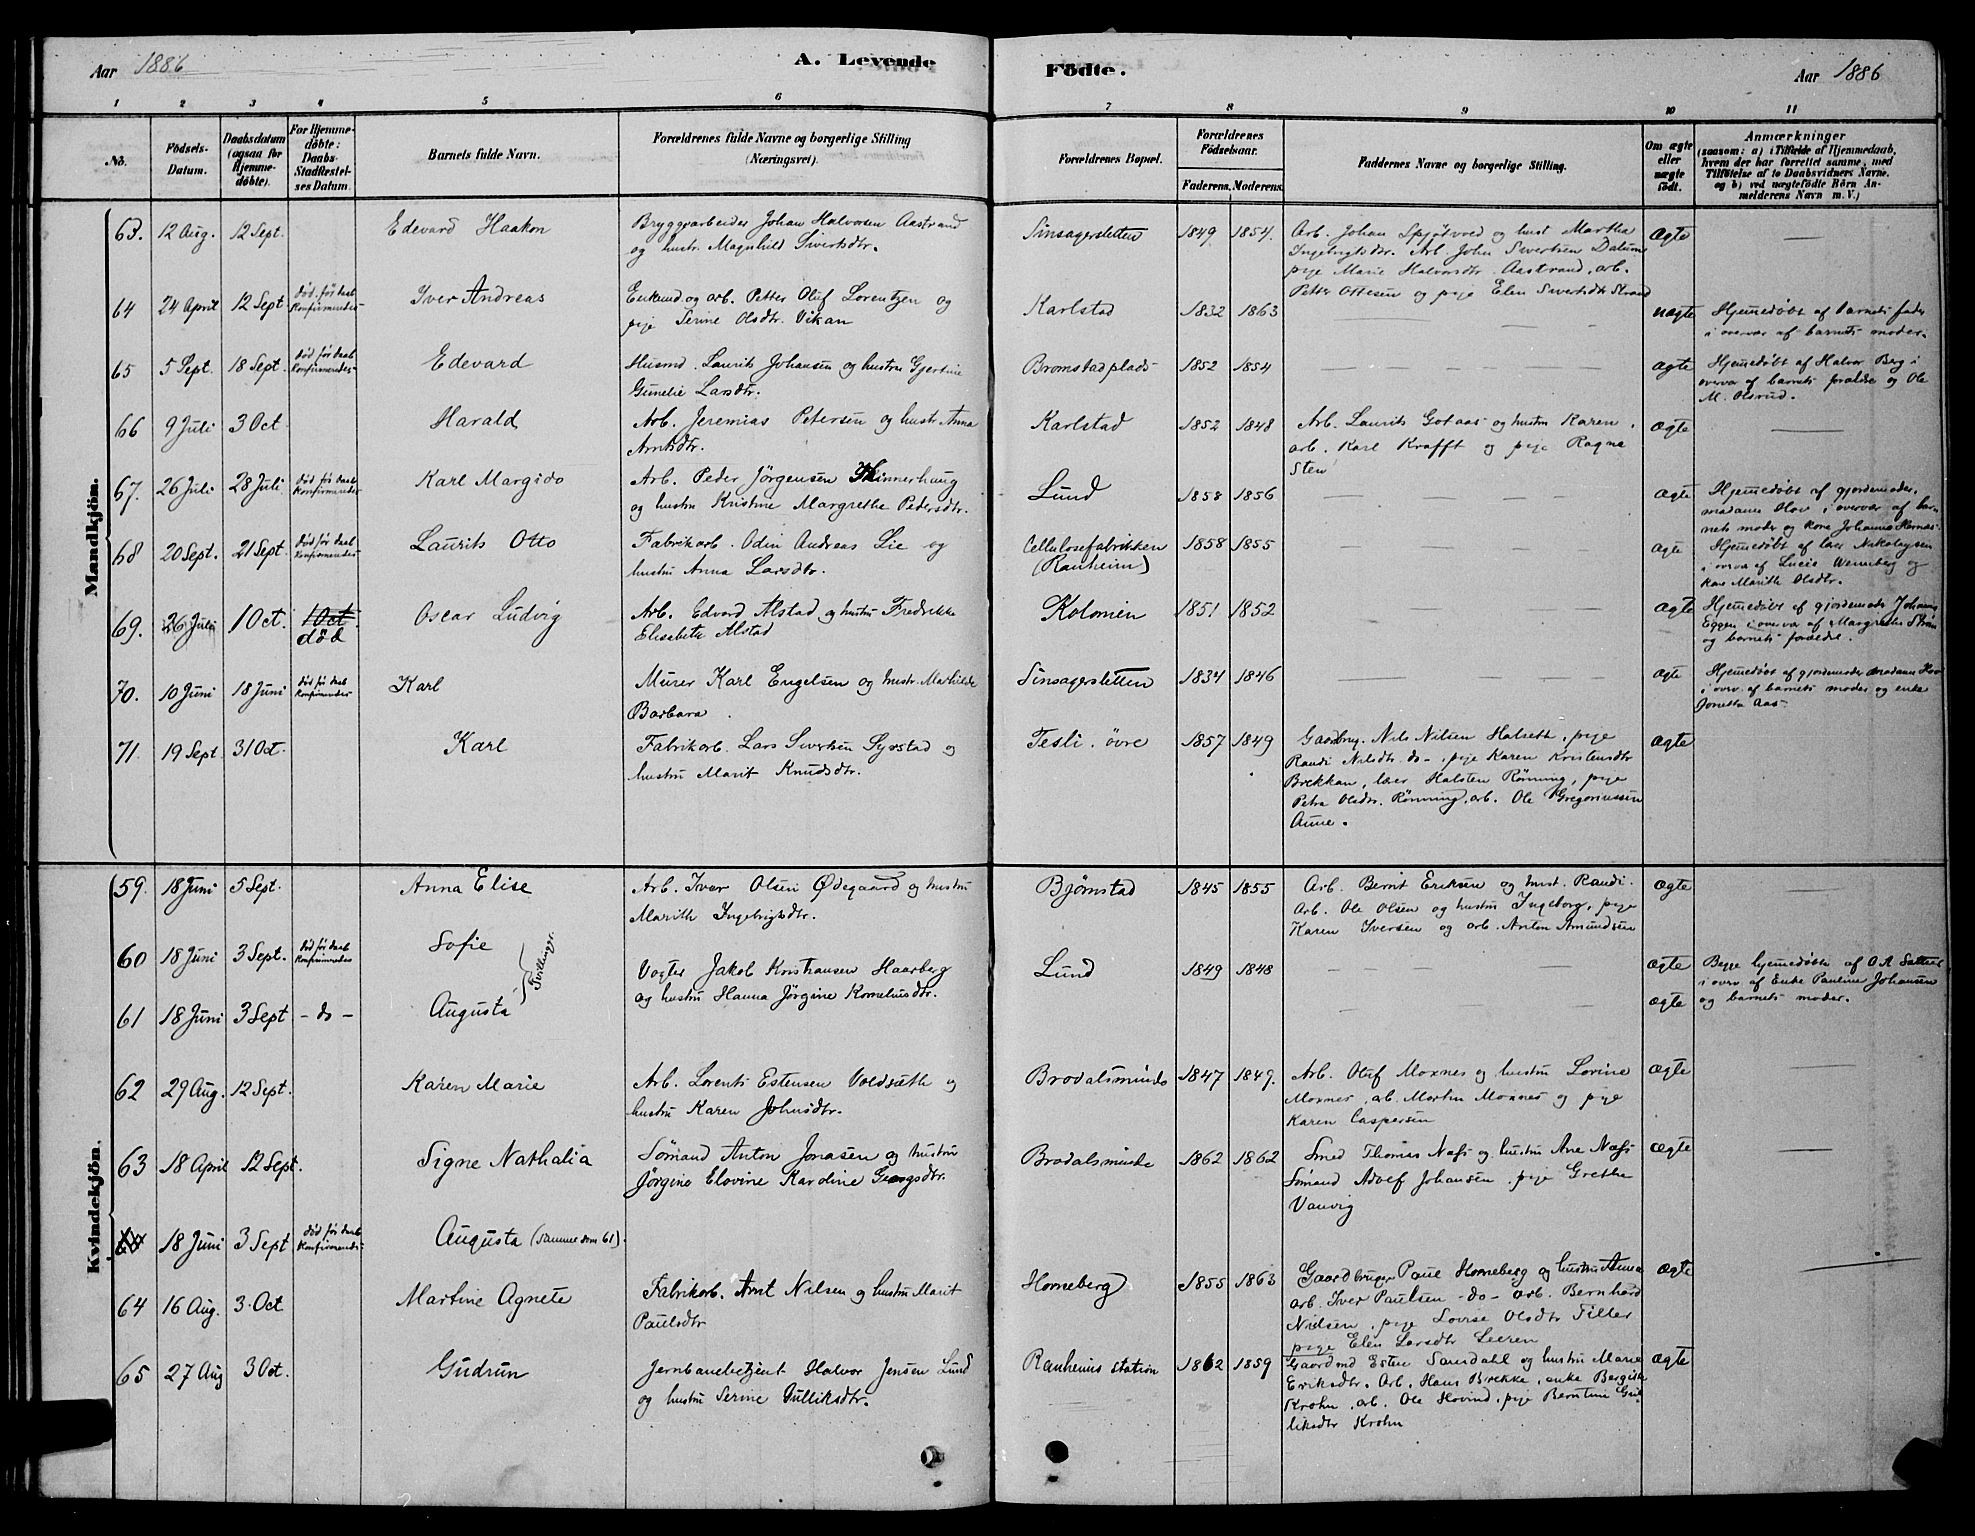 Aar 1886
A. Levende
Födte.
Aar 1886
1 2 3 4 5 6 7 8 9 10 11
No.
Födsels-
Datum.
Daabsdatum
(ogsaa for
Hjemme-
döbte).
For Hjemme-
döbte:
Daabs-
Stadfæstel-
ses Datum.
Barnets fulde Navn.
Forældrenes fulde Navne og borgerlige Stilling
(Næringsvei).
Forældrenes Bopæl.
Forældrenes
Födselsaar.
Faderens. Moderens.
Faddernes Navne og borgerlige Stilling.
Om ægte
eller
uægte
födt.
Anmærkninger
(saasom: a) i Tilfælde af Hjemmedaab,
hvem der har forrettet samme, med
Tilföielse af to Daabsvidners Navne,
og b) ved uægtefödte Börn An-
melderens Navn m. V.)
Mandkjön.
63. 12 Aug. 12 Sept. Edevard Haakon
Bryggearbeider Johan Halvorsen Aastrand
og hustr. Magnhild Sivertsdtr.
Sinsagersletten 1849 1854.
Arb. Johan Spjørvod og hust Martha
Ingebrigtsdtr. Arb. John Sivertsen Dalum
pige Marie Halvorsdtr. Aastrand, arb.
Petter Ottesen og pige Elen Sivertsdtr Strand
Ægte —
64 24 April 12 Sept død før daab
Konfirmendes
Iver Andreas
Enkemd. og arb. Petter Oluf Lorentzen og
pige Serine Olsdtr. Vikan
Karlstad 1832 1863 — — —
uægte
Hjemedøbt af barnets fader
i overvær af barnets moder.
65 5 Sept. 18 Sept. død før daab
Konfirmendes
Edevard
Husmd. Laurits Johansen og hustru Gjertine
Gunelie Larsdtr.
Bromstadplads 1852 1854 — — — —
ægte
Hjemedøbt af Halvor Berg i
overvær af barnets forældre og Ole
M. Olsrud.
66 9 Juli 3 Oct Harald
Arb. Jeremias Petersen og hustr. Anna
Arntsdtr.
Karlstad 1852 1848
Arb. Laurits Gotaas og hustru Karen,
arb. Karl Krafft og pige Ragna
Sten
ægte —
67. 26 Juli 28 Juli død før daab
Konfirmendes
Karl Margido
Arb. Peder Jørgensen
og hustru Kristine Margrethe Pedersdtr.
Lund 1858 1856 — — — —
ægte
Hjemedøbt af gjordemoder,
madame Hov i overvær af bar-
nets moder og kone Johanna
68 20 Sept. 21 Sept. død før daab
Konfirmendes
Laurits Otto
Fabrikarb. Odin Andreas Lie og
hustru Anna Larsdtr.
Cellulosefabrikken
(Ranheim)
1858 1855 — — — —
ægte
Hjemedøbt af lær. Nikolaysen
i overvær af Lucie Wennberg og
kone Marith Olsdtr.
69. 26 Juli 1 Oct. 1 Oct.
død
Oscar Ludvig
Arb. Edvard Alstad og hustru Fredrikke
Elisabeth Alstad
Kolonien 1851 1852 — — — —
ægte
Hjemedøbt af gjordemoder Johanna
Eggen i overvær af Margrethe Strøm
og barnets forældre.
70. 10 Juni 18 Juni død før daab
Konfirmendes
Karl
Murer Karl Engelsen og hustr. Mathilde
Barbara.
Sinsagersletten 1834 1846 — — — —
ægte
Hjemedøbt af gjordemoder madame Hov
i overv. af barnets moder og enke
Jonetta Aas
71. 19 Sept 31 Oct. Karl
Fabrikarb. Lars Sivertsen Syrstad og
hustru Marit Knudsdtr.
Tesli. øvre 1857 1849
Gaardbrug. Nils Nilsen Halseth, pige
Randi Nilsdtr. do-, pige Karen Kristensdtr
Brekkan, lærer Halsten Rønning, pige
Petra Olsdtr. Rønning, arb. Ole Gregoriussen
Aune.
Ægte
Kvindekjön.
59. 18 Juni 5 Sept. Anna Elise
Arb. Iver Olsen Ødegaard og hustru
Marith Ingebrigtsdtr.
Bjørnstad 1845 1855
Arb. Bernt Eriksen og hust. Randi.
Arb. Ole Olsen og hustru Ingeborg, pige
Karen Iversen og arb. Anton Amundsen
Ægte —
60 18 Juni 3 Sept. død før daab
Konfirmendes
Sofie
Tvillinger.
Vogter Jakob Kristiansen Haarberg
og hustru Hanna Jørgine Kornelius dtr.
Lund 1849 1848 — — — —
Ægte
Begge hjemedøbte af O A
i overv. af Enke Pauline Johansen
og barnets moder.
61 18 Juni 3 Sept - do - Augusta — — — —
ægte
62 29 Aug. 12 Sept. Karen Marie
Arb. Lorents Estensen Voldsæth og
hustru Karen Johnsdtr.
Brodalsminde 1847 1849.
Arb. Oluf Moxnes og hustru Lovine
Moxnes, arb. Martin Moxnes og pige
Karen Caspersen
Ægte —
63 18 April 12 Sept. Signe Nathalia
Sømand Anton Jonasen og hustru
Jørgine Elovine Kardine Georgsdtr.
Brodalsminde 1862 1862
Smed Thomas Næss og hustru Ane Næss
Sømand Adolf Johansen, pige Grethe
Vanvig
Ægte —
64 18 Juni 3 Sept død før daab
Konfirmendes
Augusta (samme som 61).
64 16 Aug. 3. Oct Martine Agnete
Fabrikarb. Arnt Nilsen og hustru Marit
Paulsdtr
Horneberg 1855 1863
Gaardbruger Paul Horneberg og hustru Anna
arb. Iver Paulsen - do - arb. Bernhard
Nielsen, pige Lovise Olsdtr Tiller
pige Elen Larsdtr Leeren
ægte —
65 27 Aug 3 Oct. Gudrun
Jernbanebetjent Halvor Jensen Lund
og hustru Serine Gulliksdtr.
Ranheims station 1862 1859
Gaardmd Esten Sandahl og hustru Marie
Eriksdtr. Arb. Hans Brekke, enke Bergitte
Krohn, arb. Ole Hovind, pige Berntine Gul-
liksdtr Krohn
Ægte